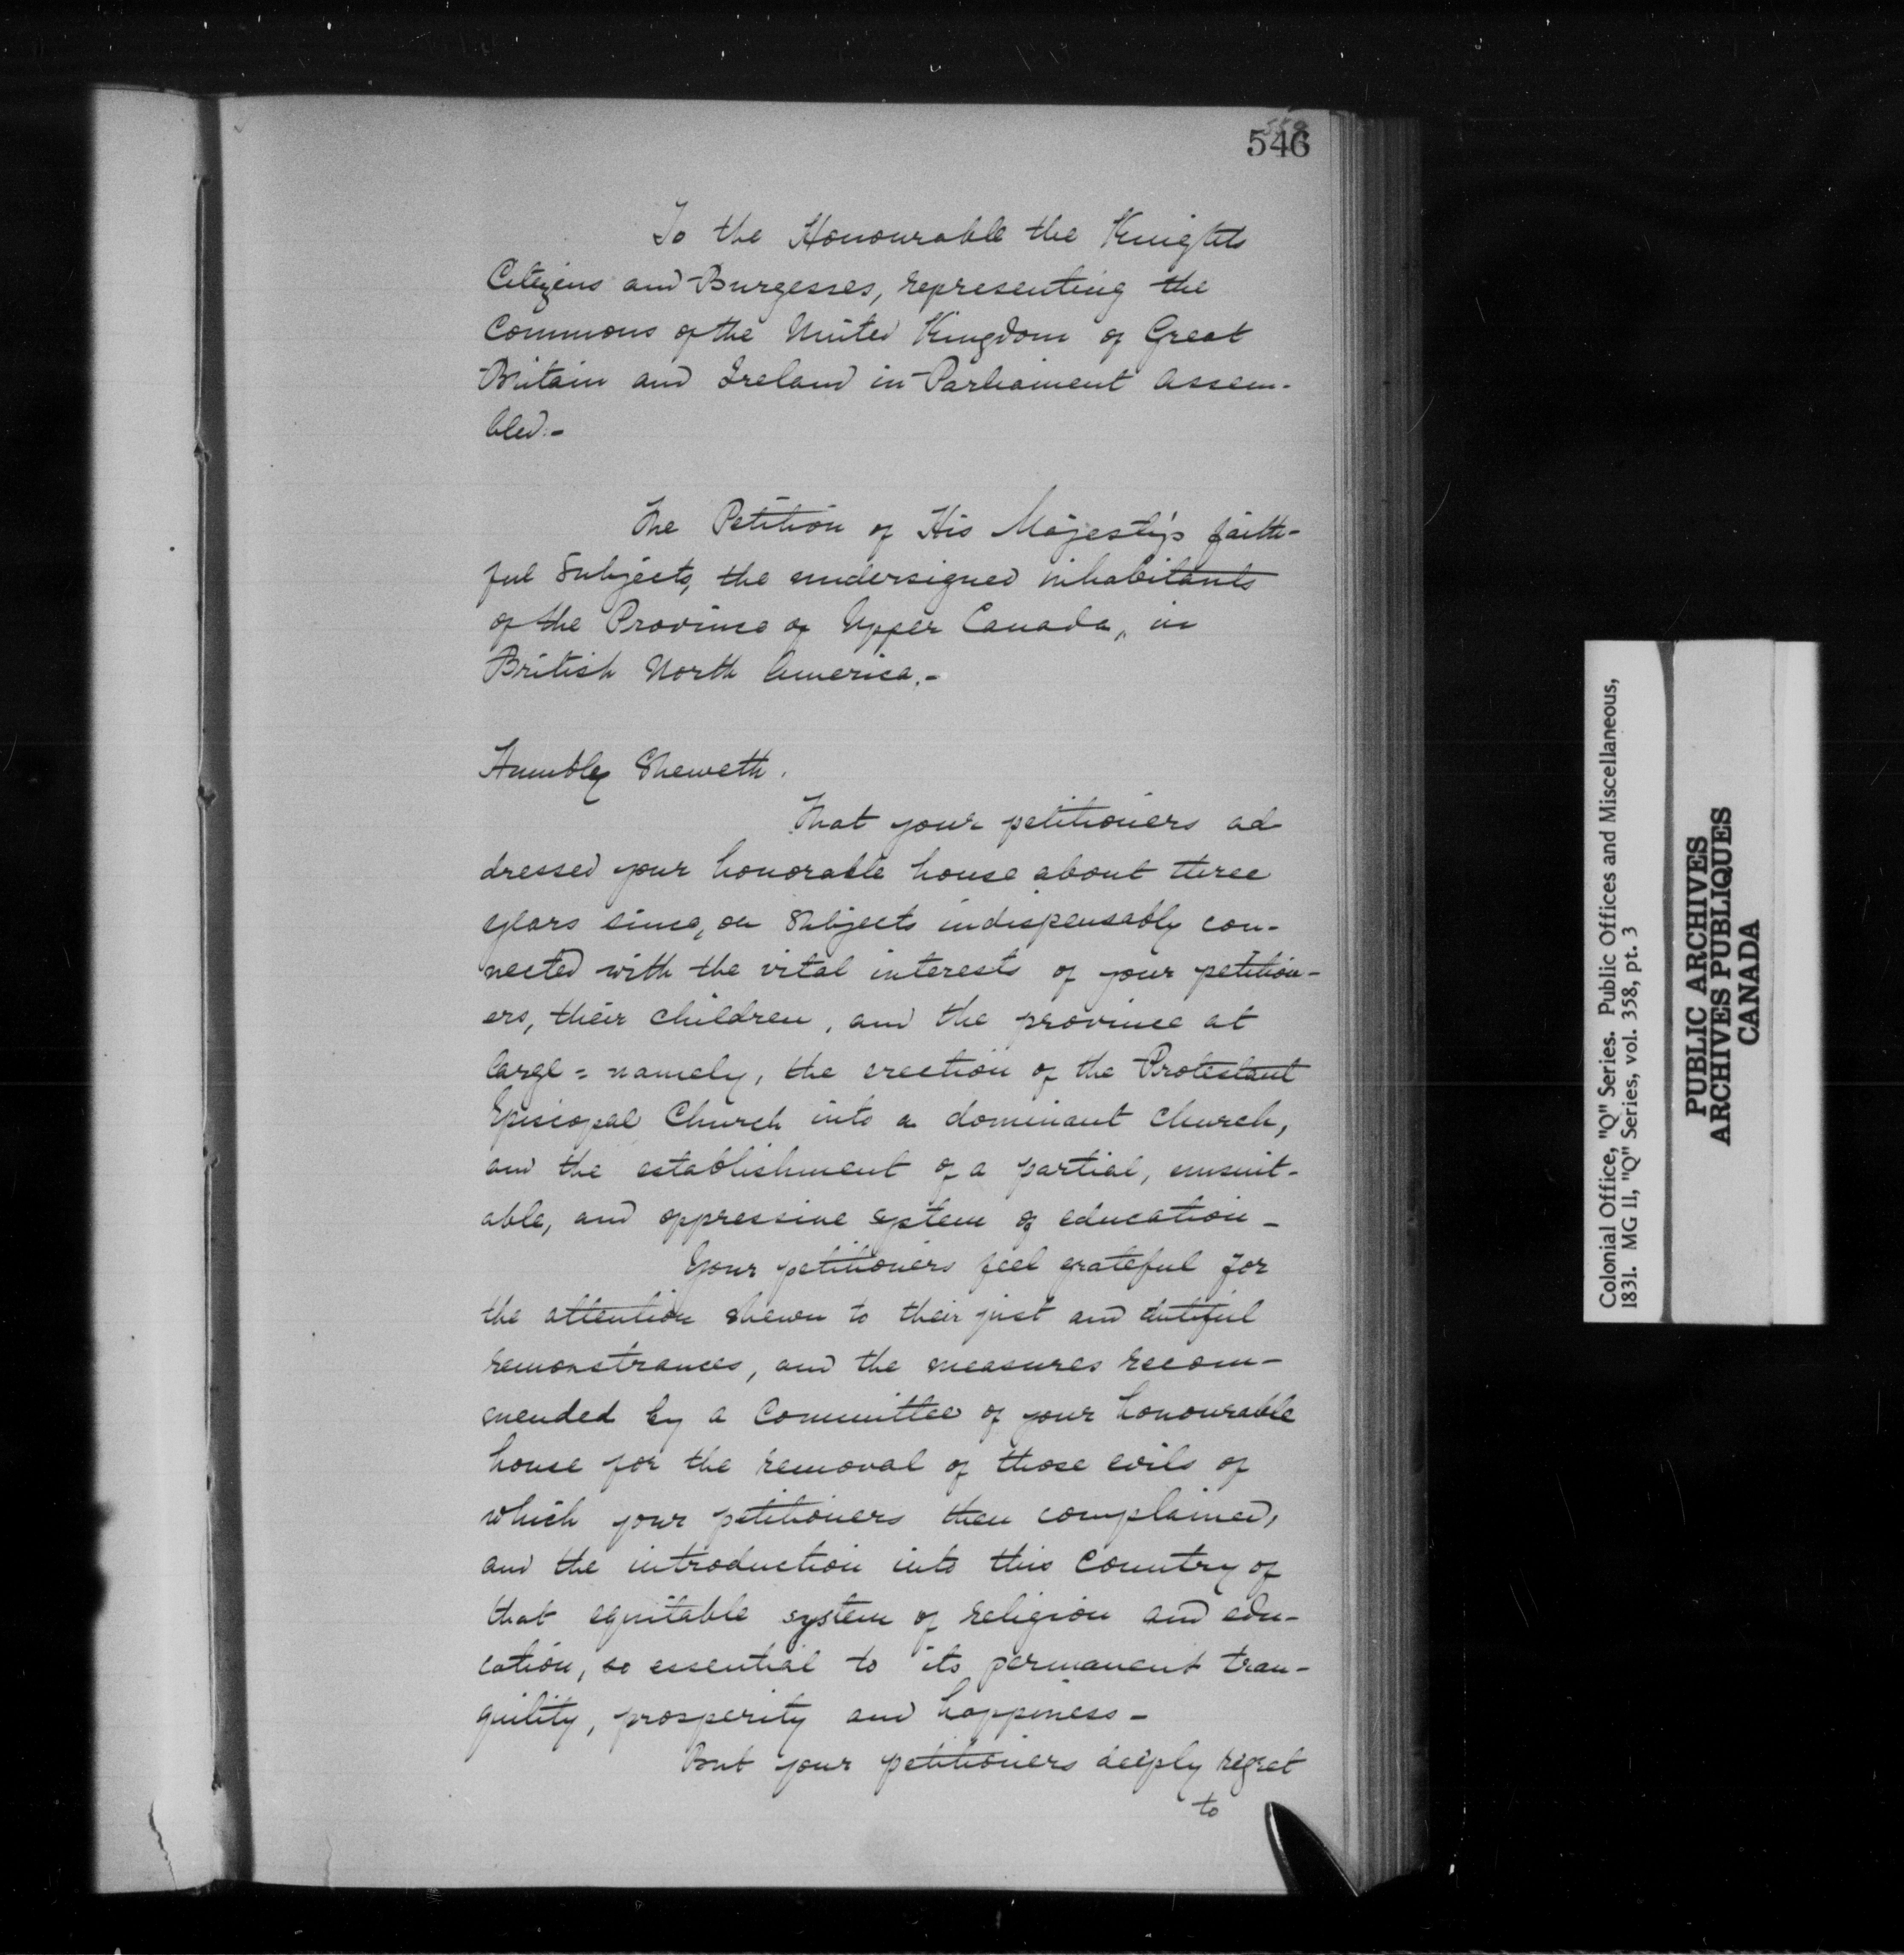 546
To the Honourable the Knights
Citizens and Burgesses, representing the
Commons of the United Kingdom of Great
Britain and Ireland in Parliament Assem-
bled.-
The Petition of His Majesty's faith-
ful Subjects, the undersigned inhabitants
of the Province of Upper Canada, in
British North America.-
Humbly Sheweth.
That your petitioners ad
dressed your honorable house about three
years since, on Subjects indispensably con-
nected with the vital interests of your petition-
ers, their children, and the province at
large = namely, the erection of the Protestant
Episcopal Church into a dominant church,
and the establishment of a partial, unsuit-
able, and oppressive system of education -
Your petitioners feel grateful for
the attention shewn to their just and dutiful
remonstrances, and the measures recom-
mended by a Committee of your honourable
house for the removal of those evils of
which your petitioners then complained,
and the introduction into this Country of
that equitable system of religion and edu-
cation, so essential to its permanent tran-
quility, prosperity and happiness -
But your petitioners deeply regret
to
Colonial Office, "Q" Series. Public Offices and Miscellaneous,
1831. MG 11, "Q" Series, vol. 358, pt. 3
PUBLIC ARCHIVES
ARCHIVES PUBLIQUES
CANADA